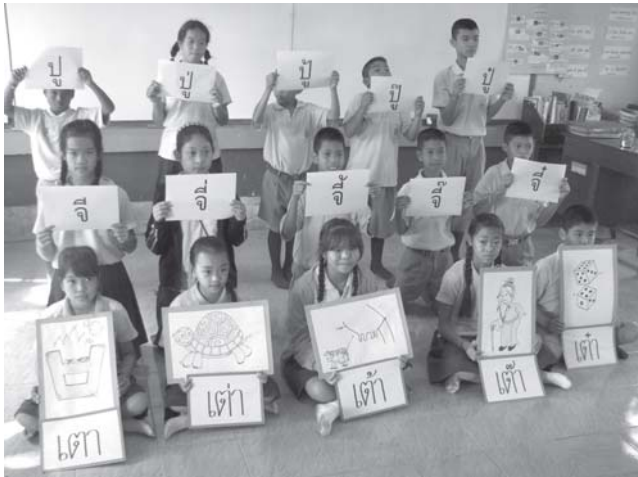 ปู ปู่ ปู้ ปู๊ ปู๋
จี จี่ จี้ จี๊ จี๋
เตา เต่า เต้า เต๊า เต๋า